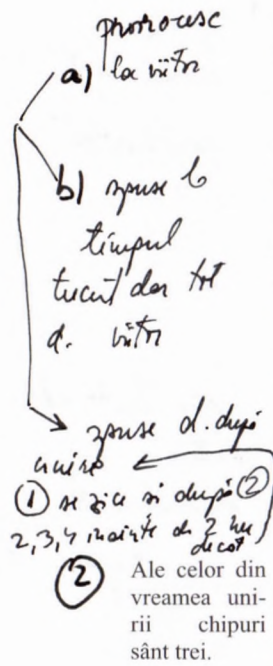 prorocesc
a) la viitor
b) spuse la
timpul
trecut dar tot
d. viitor
spuse d. după
unire
① se zice si după ②
2, 3, 4 înainte de 2 nu
decât
② Ale celor din
vreamea uni-
rii chipuri
sânt trei.